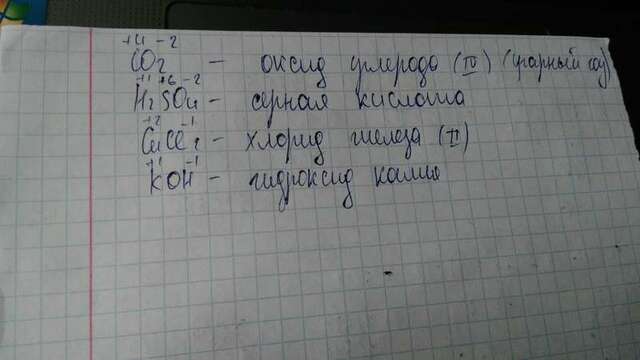 +4 -2
CO2 - оксид углерода (IV) (угарный газ)
+1 +6 -2
H2SO4 - серная кислота
+2 -1
CuCl2 - хлорид железа (II)
+1 -1
KOH - гидроксид калия